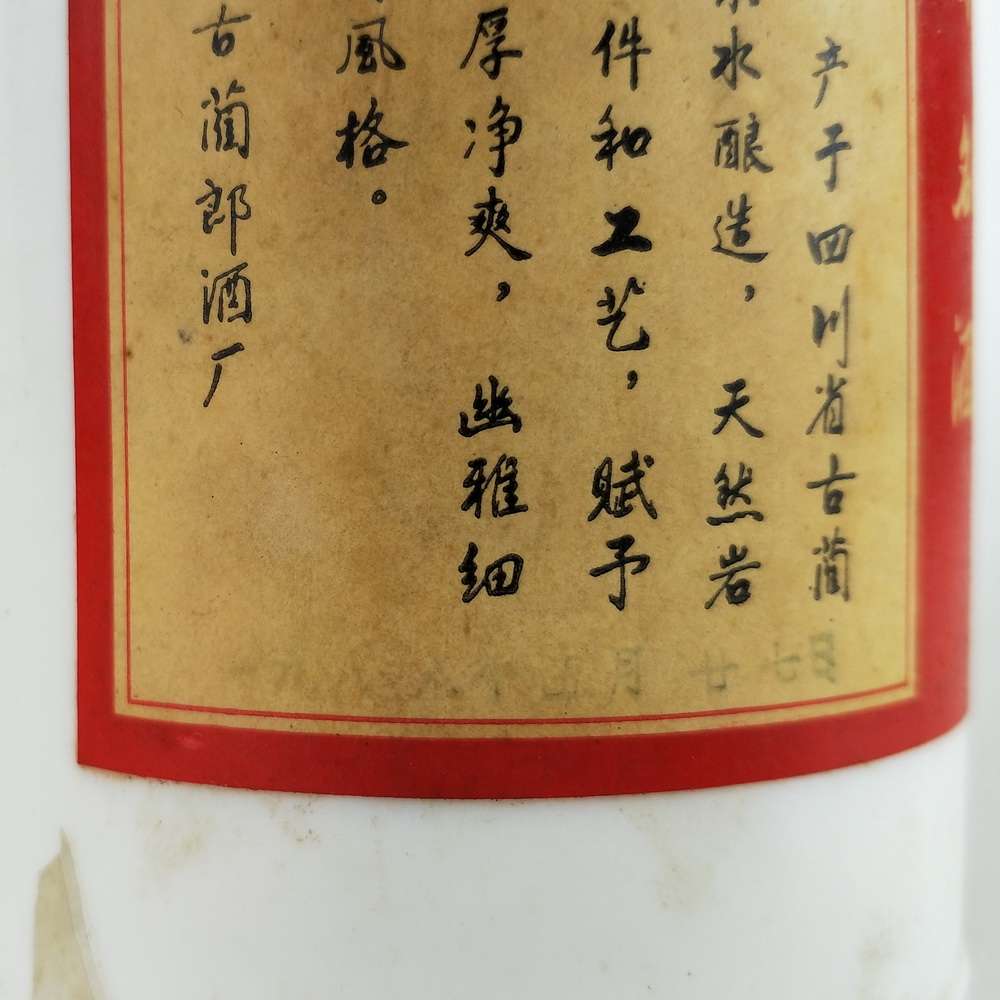 产于四川省古蔺
水酿造，天然岩
件和工艺，赋予
厚净爽，幽雅细
風格。
古蔺郎酒厂
酒